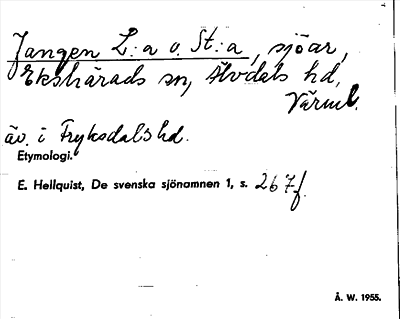 Jangen L:a o. St:a, sjöar,
Ekshärads sn, Älvdals hd,
Värml.
äv. i Fryksdals hd.
Etymologi.
E. Hellquist, De svenska sjönamnen 1, s. 267f.
Å. W. 1955.